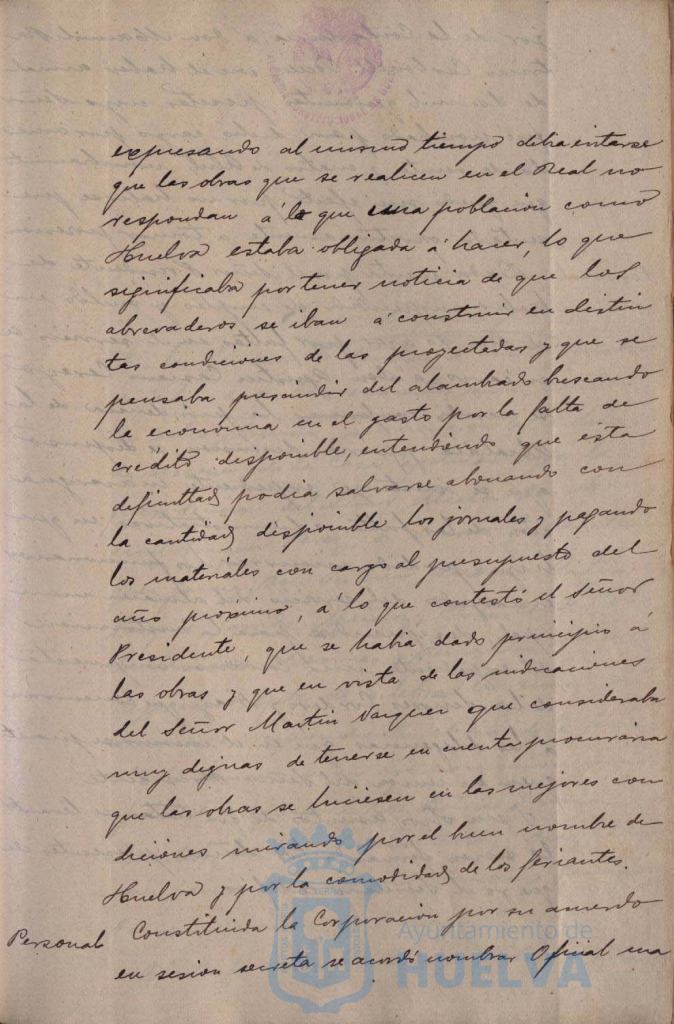 expresando al mismo tiempo debia evitarse
que las obras que se realicen en el Real no
respondan á lo que una poblacion como
Huelva estaba obligada á hacer, lo que
significaba por tener noticia de que los
abrevaderos se iban á construir en distin
tas condiciones de las proyectadas y que se
pensaba prescindir del alambrado buscando
la economia en el gasto por la falta de
credito disponible, entendiendo que esta
dificultad podia salvarse abonando con
la cantidad disponible los jornales y pagando
los materiales con cargo al presupuesto del
año proximo, á lo que contestó el Señor
Presidente, que se habia dado principio á
las obras y que en vista de las indicaciones
del Señor Martin Vazquez que consideraba
muy dignas de tenerse en cuenta procuraria
que las obras se hiciesen en las mejores con
diciones mirando por el buen nombre de
Huelva y por la comodidad de los feriantes.
Personal Constituida la Corporación por su acuerdo
en sesion secreta se acordó nombrar Oficial ma
Ayuntamiento de
HUELVA